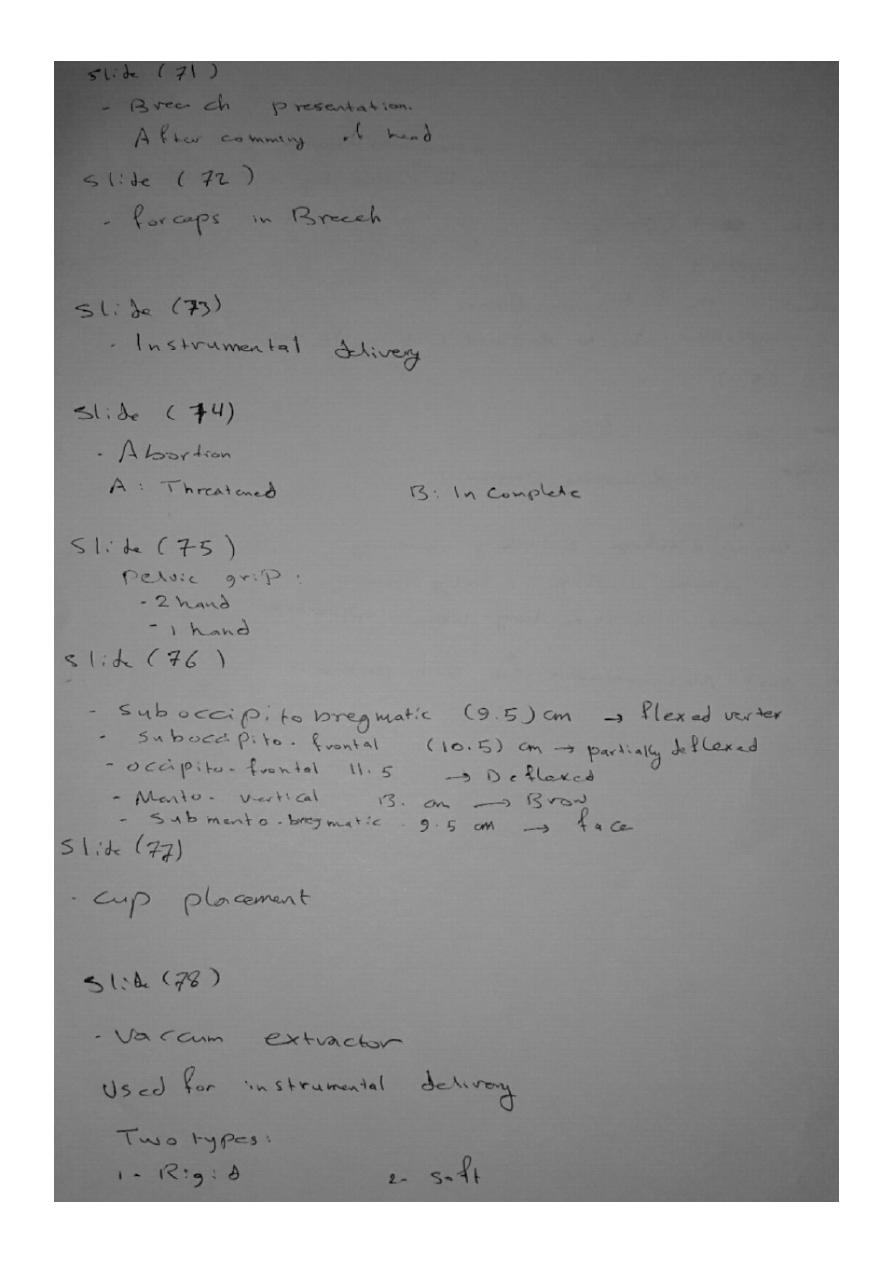 Slide (71)
- Breach presentation.
After comming of head
Slide (72)
- forceps in Breech
Slide (73)
- Instrumental delivery
Slide (74)
- Abortion
A: Threatened B: In complete
Slide (75)
Pelvic grip:
- 2 hand
- 1 hand
Slide (76)
- Suboccipito bregmatic (9.5) cm → flexed verter
- Suboccipito-frontal (10.5) cm → partially deflexed
- occipito-frontal 11.5 → Deflexed
- Mento-vertical 13. cm → Brow
- Submento-bregmatic - 9.5 cm → face
Slide (77)
- cup placement
Slide (78)
- Vaccum extractor
Used for instrumental delivery
Two types:
1- Rigid 2- Soft